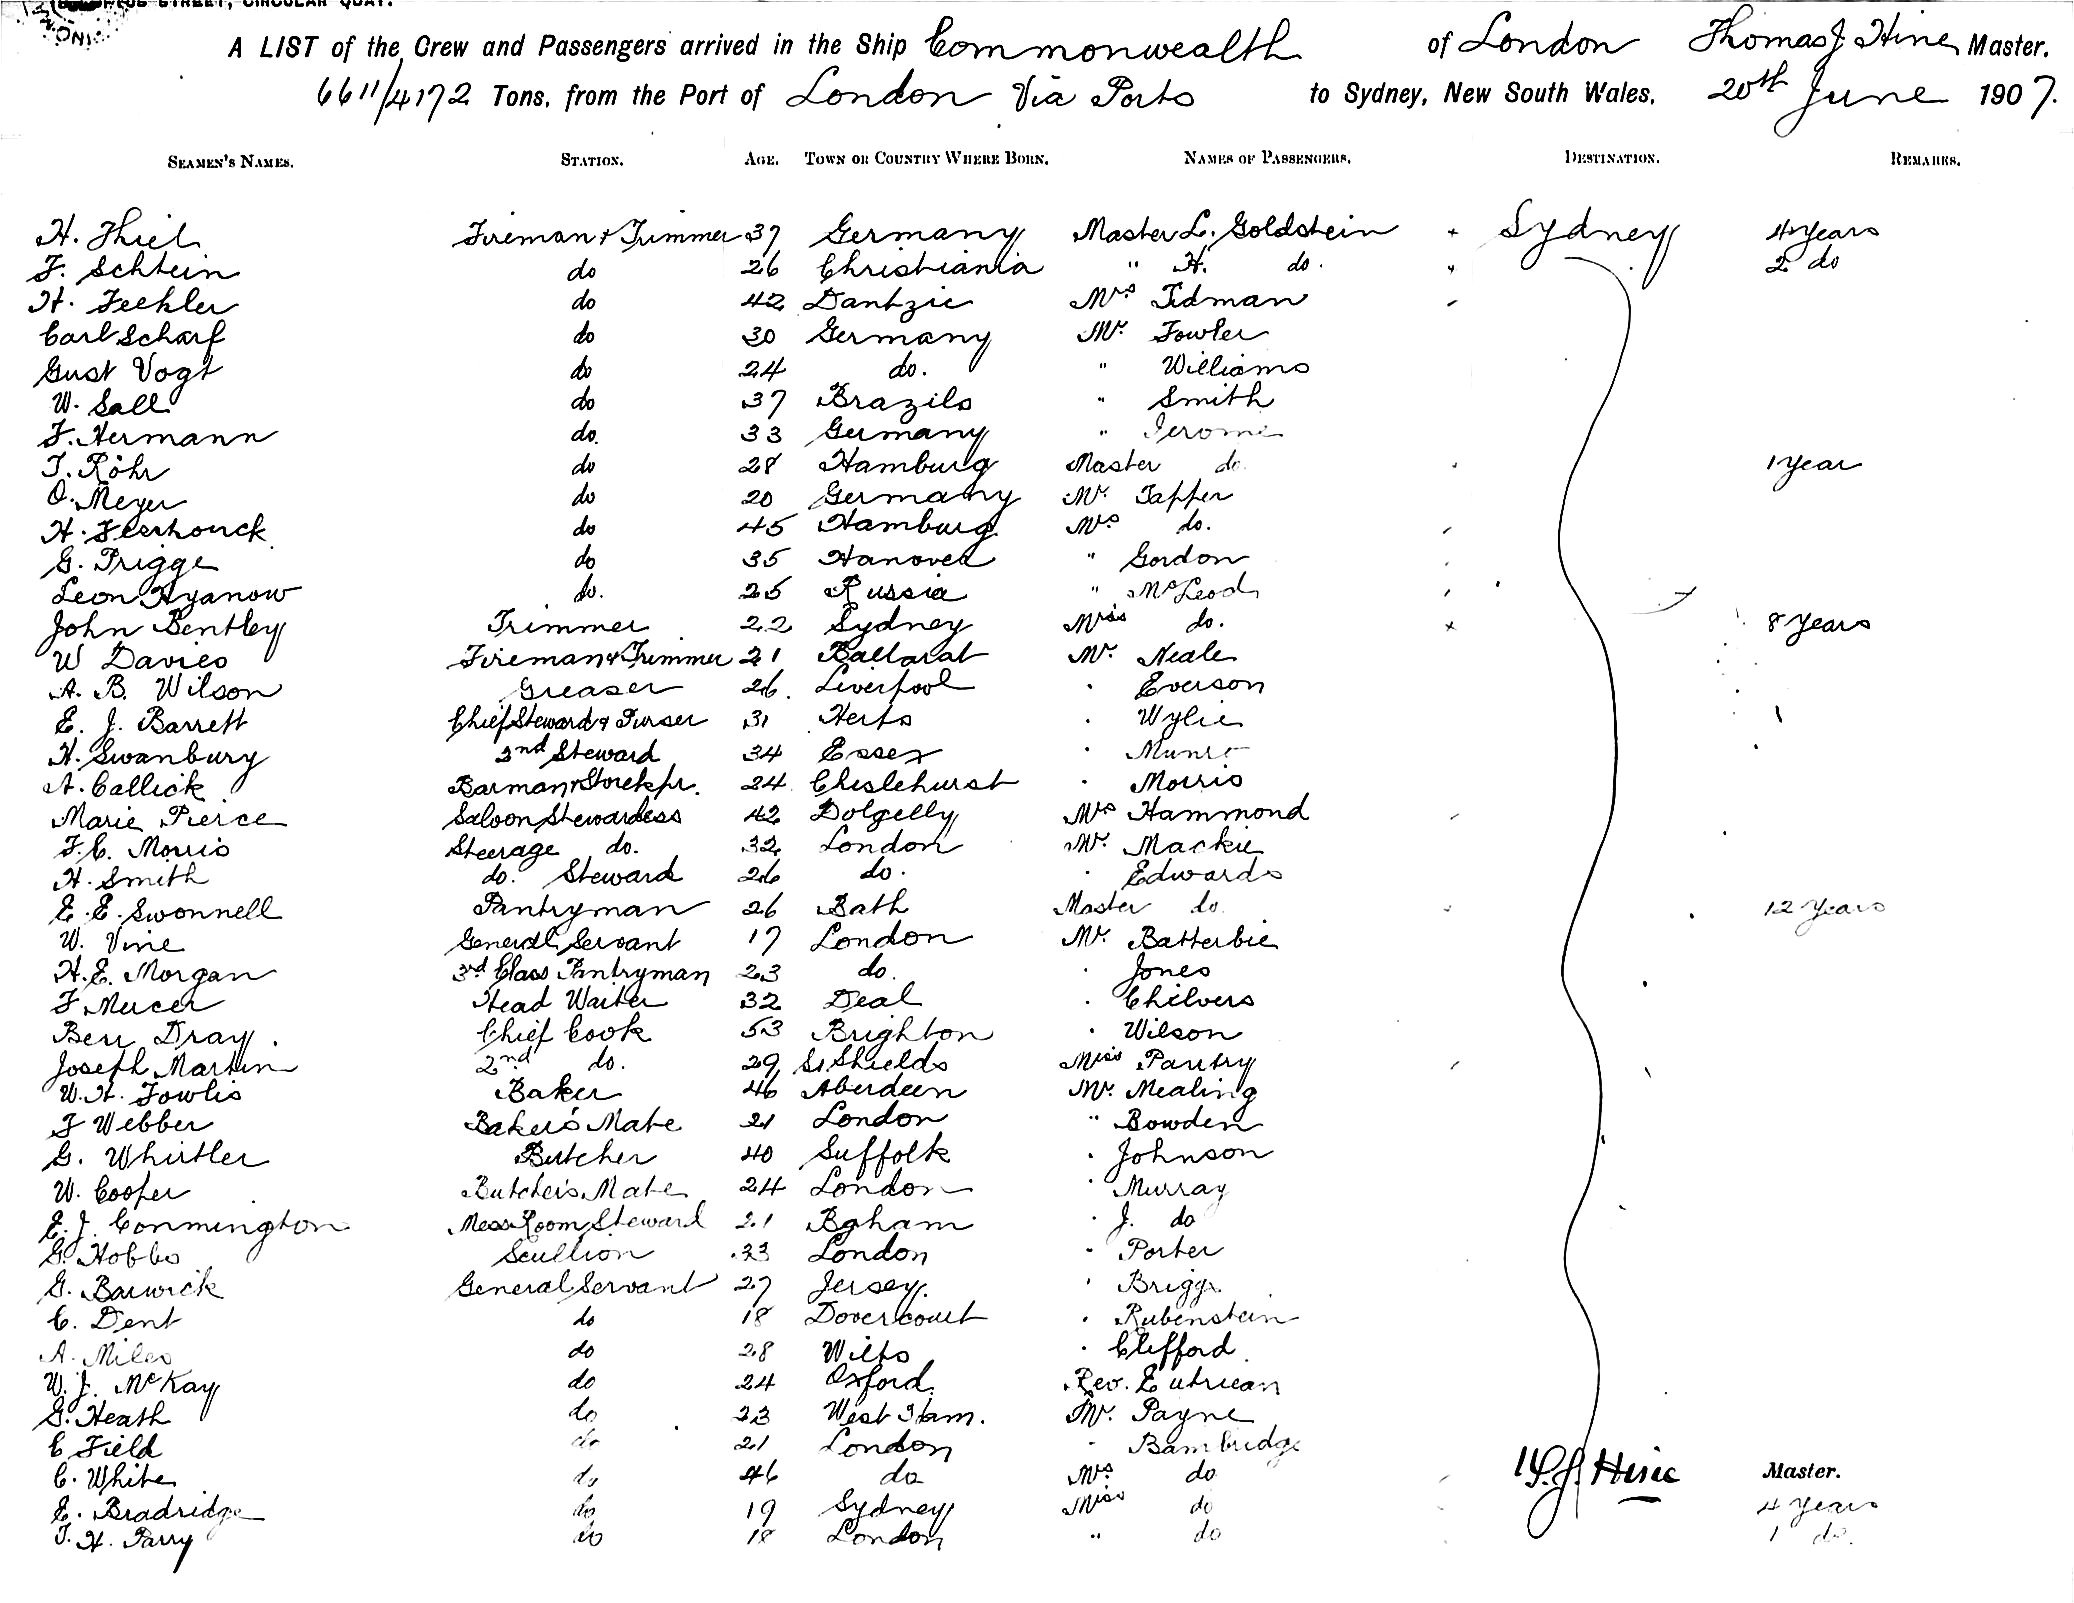 STREET, CIRCULAR QUAY.
A LIST of the Crew and Passengers arrived in the Ship Commonwealth of London Thomas J. Hine Master.
6611/4172 Tons, from the Port of London Via Ports to Sydney, New South Wales, 20th June 1907.
SEAMEN'S NAMES. STATION. AGE. TOWN OR COUNTRY WHERE BORN. NAMES OF PASSENGERS. DESTINATION. REMARKS.
H. Thiel Fireman & Trimmer 37 Germany Master L. Goldstein Sydney 4 Years
F. Schtein do 26 Christiania " H. do. 2 do
H. Feehler do 42 Dantzic Mrs Tidman
Carl Scharf do 30 Germany Mr. Fowler
Gust Vogt do 24 do. " Williams
W. Sall do 37 Brazils " Smith
F. Hermann do. 33 Germany " Jerome
T. Röhr do 28 Hamburg Master do. 1 Year
O. Meyer do 20 Germany Mr. Tapper
H. Fleerhouck do 45 Hamburg. Mrs do.
G. Prigge do 35 Hanover " Gordon
Leon Hyanow do. 25 Russia " McLeod
John Bentley Trimmer 22 Sydney Miss do. 8 Years
W Davies Fireman & Trimmer 21 Ballarat Mr. Neale
A. B. Wilson Greaser 26. Liverpool Everson
E. J. Barrett Chief Steward & Purser 31 Herts Wylie
H. Swanbury 2nd Steward 34 Essex Munro
A. Callick Barman & Storekpr. 24 Chislehurst Morris
Marie Pierce Saloon Stewardess 42 Dolgelly Mrs Hammond
F. C. Morris Steerage do. 32 London Mr. Mackie
H. Smith do. Steward 26 do. Edwards
E. E. Swonnell Pantryman 26 Bath Master do. 12 Years
W. Vine General Servant 17 London Mr. Batterbie
H. E. Morgan 3rd Class Pantryman 23 do. Jones
F Mercer Head Waiter 32 Deal Chilvers
Ben Dray. Chief Cook 53 Brighton Wilson
Joseph Martin 2nd do. 29 So Shields Miss Pautry
W. H. Fowlis Baker 46 Aberdeen Mr. Mealing
F Webber Baker's Mate 21 London " Bowden
G. Whistler Butcher 40 Suffolk Johnson
W. Cooper Butcher's Mate 24 London Murray
E. J. Conmington Mess Room Steward 21 Egham J. do
G. Hobbs Scullion 33 London Porter
G. Barwick General Servant 27 Jersey. Briggs
C. Dent do 18 Dovercourt Rubenstein
A. Miles do 28 Wilts Clifford
W. J. McKay do 24 Oxford. Rev. Eutrican
G. Heath do 23 West Ham. Mr. Payne
C Field do 21 London Bambridge
C. White do 46 do Mrs do T. J. Hine Master.
E. Bradridge do 19 Sydney Miss do 4 Years
T. H. Parry do 18 London " do 1 do.